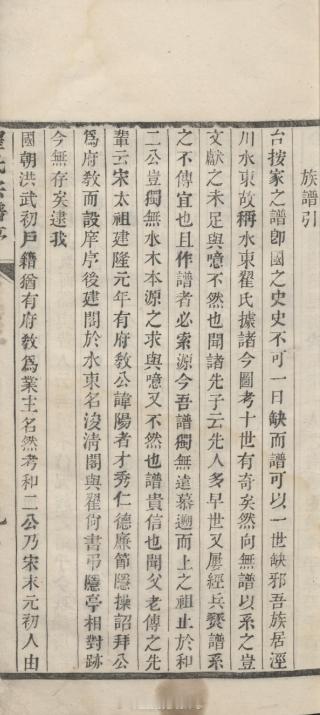 族譜引
台按家之譜卽國之史史不可一日缺而譜可以一世缺邪吾族居涇
川水東故稱水東翟氏據諸今圖考十世有奇矣然向無譜以系之豈
文獻之未足與噫不然也聞諸先子云先人多早世又屢經兵燹譜系
之不傳宜也且作譜者必索源今吾譜獨無遠慕遡而上之祖止於和
二公豈獨無水木本源之求與噫又不然也譜貴信也聞父老傳之先
輩云宋太祖建隆元年有府教公諱陽者才秀仁德廉節隱操詔拜公
爲府教而設庠序後建閣於水東名浚清閣與翟尙書弔隱亭相對跡
今無存矣逮我
國朝洪武初戸籍猶有府教爲業主名然考和二公乃宋末元初人由